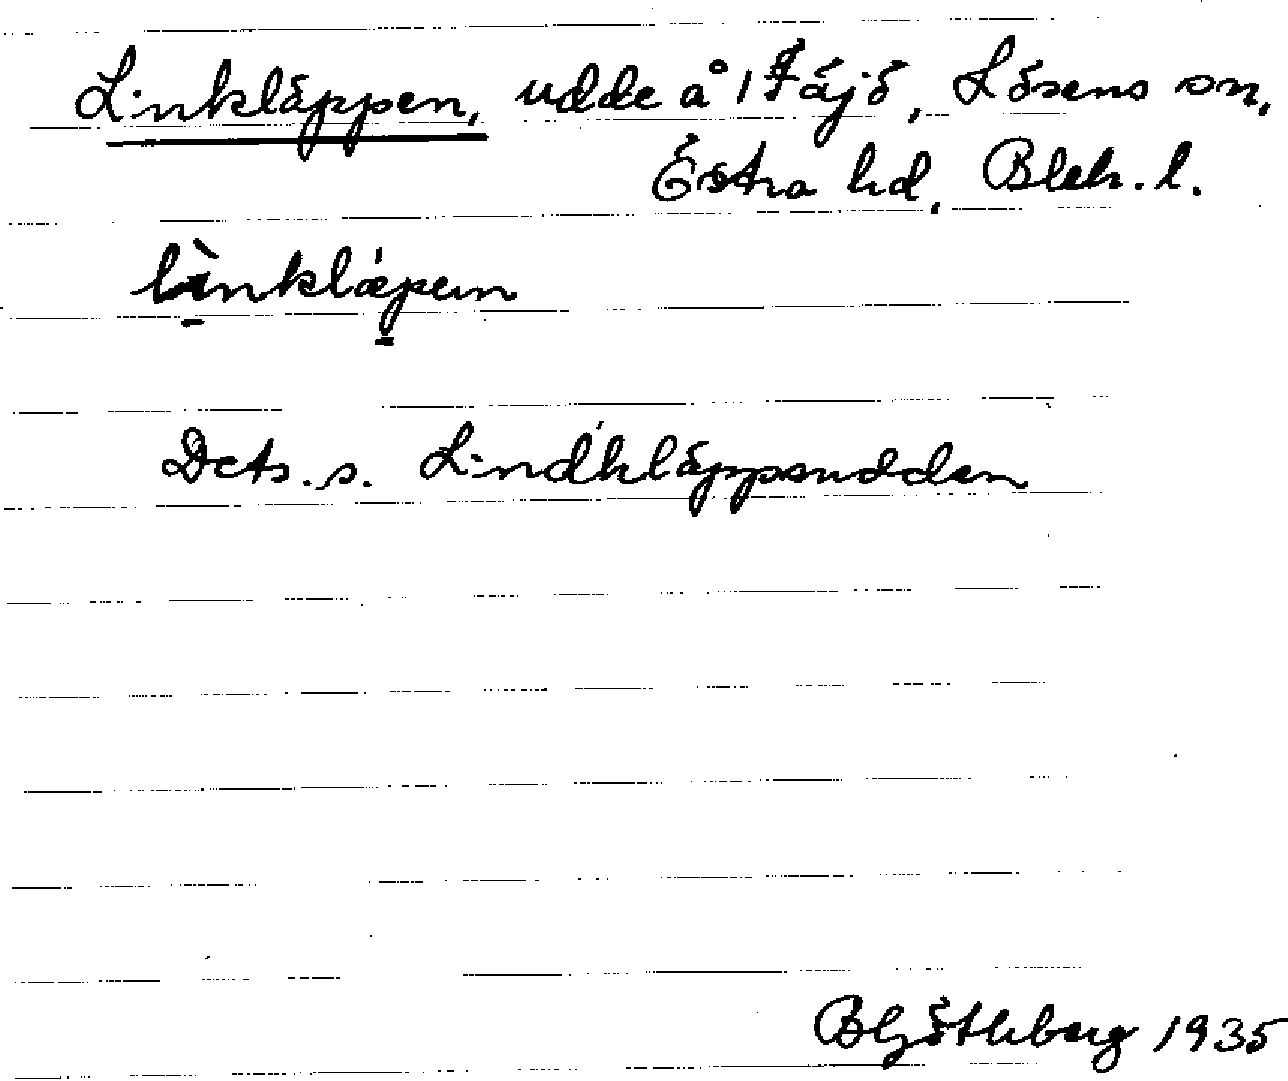 Linkläppen, udde å Fäjö, Lösens sn,
Östra hd, Blek. l.
lìnklǽpen
Dets. s. Lindkläppsudden
1935